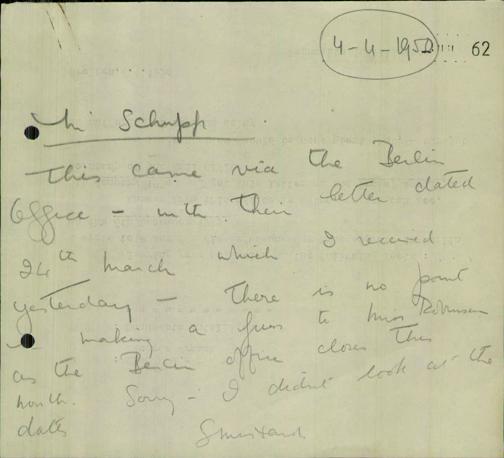 4-4-1950 62
Mr Schupp
This came via the Berlin
Office - with their letter dated
24th March which I received
yesterday - there is no point
in making a fuss to Miss Robinson
as the Berlin office closes this
month. Sorry - I didn't look at the
dates